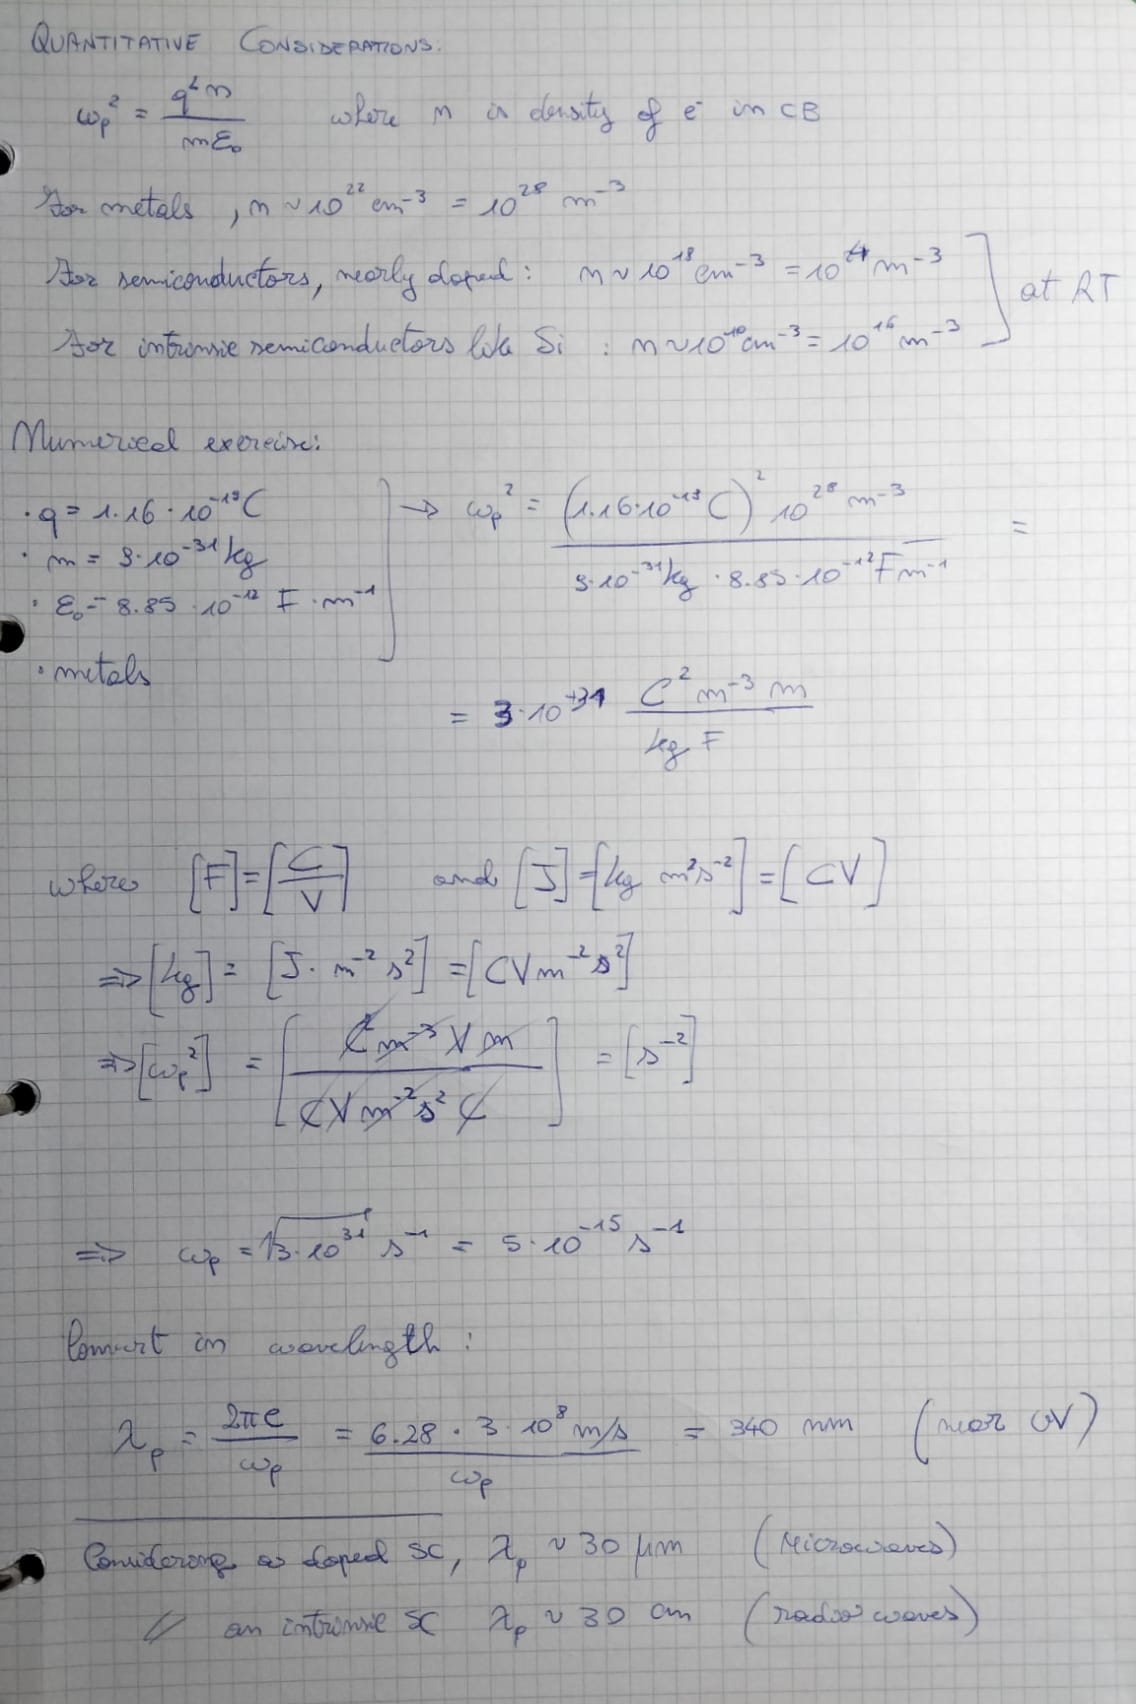 QUANTITATIVE CONSIDERATIONS:
ωp² = q²n / mε₀ where n is density of e⁻ in CB
For metals, n ~ 10²² cm⁻³ = 10²⁸ m⁻³
For semiconductors, nearly doped: n ~ 10¹⁸ cm⁻³ = 10²⁴ m⁻³
at RT
For intrinsic semiconductors like Si : n ~ 10¹⁰ cm⁻³ = 10¹⁶ m⁻³
Numerical exercise:
· q = 1.16 · 10⁻¹⁹ C
· m = 9 · 10⁻³¹ kg
· ε₀ = 8.85 · 10⁻¹² F · m⁻¹
· metals
→ ωp² = (1.16 · 10⁻¹⁹ C)² 10²⁸ m⁻³ / 9 · 10⁻³¹ kg · 8.85 · 10⁻¹² F m⁻¹ =
= 3 · 10⁺³¹ C² m⁻³ m / kg F
where [F] = [C / V] and [J] = [kg m² s⁻²] = [CV]
⇒ [kg] = [J · m⁻² s²] = [CV m⁻² s²]
⇒ [ωp²] = [C² m⁻³ V m / C V m⁻² s² C] = [s⁻²]
⇒ ωp = √3 · 10³¹ s⁻¹ = 5 · 10⁻¹⁵ s⁻¹
Convert in wavelength :
λp = 2πc / ωp = 6.28 · 3 · 10⁸ m/s / ωp = 340 nm (near UV)
Considering a doped SC, λp ~ 30 μm (Microwaves)
// an intrinsic SC λp ~ 30 cm (radio waves)